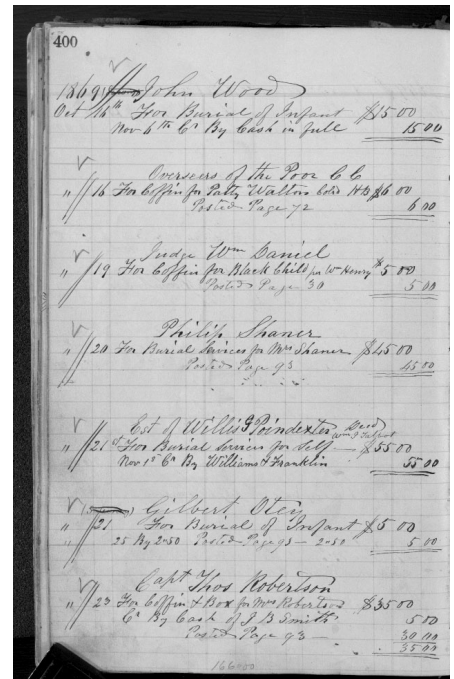 400
1869 John Wood
Oct 16th For Burial of Infant $15 00
Nov 6th Cr By Cash in full 15 00
Overseers of the Poor C C
" 16 For Coffin for Patty Walton Cold $6 00
Posted Page 72 6 00
Judge Wm Daniel
" 19 For Coffin for Black Child for Wm Henry $5 00
Posted Page 30 5 00
Philip Shaner
" 20 For Burial Services for Mrs Shaner $45 00
Posted Page 93 45 00
Est of Willis G Poindexter Decd
" 21st For Burial Services for Self — $55 00
Nov 1st Cr By Williams & Franklin 55 00
Gilbert Otey
" 21 For Burial of Infant $5 00
" 25 By 2=50 Posted Page 93 - 2=50 5 00
Capt Thos Robertson
" 23 For Coffin & Box for Mrs Robertson $35 00
Cr By Cash of J B Smith 5 00
Posted Page 93 — 30 00
35 00
16600